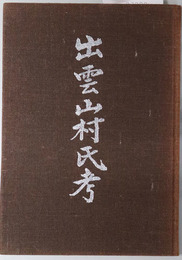 出雲山村氏考